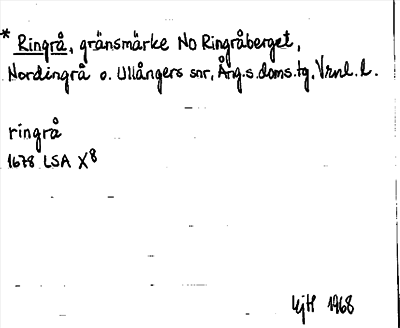 * Ringrå, gränsmärke NO Ringråberget,
Nordingrå o. Ullångers snr, Ång.s.doms.tg. Vrnl. l.
ringrå
1678 LSA X8
1968